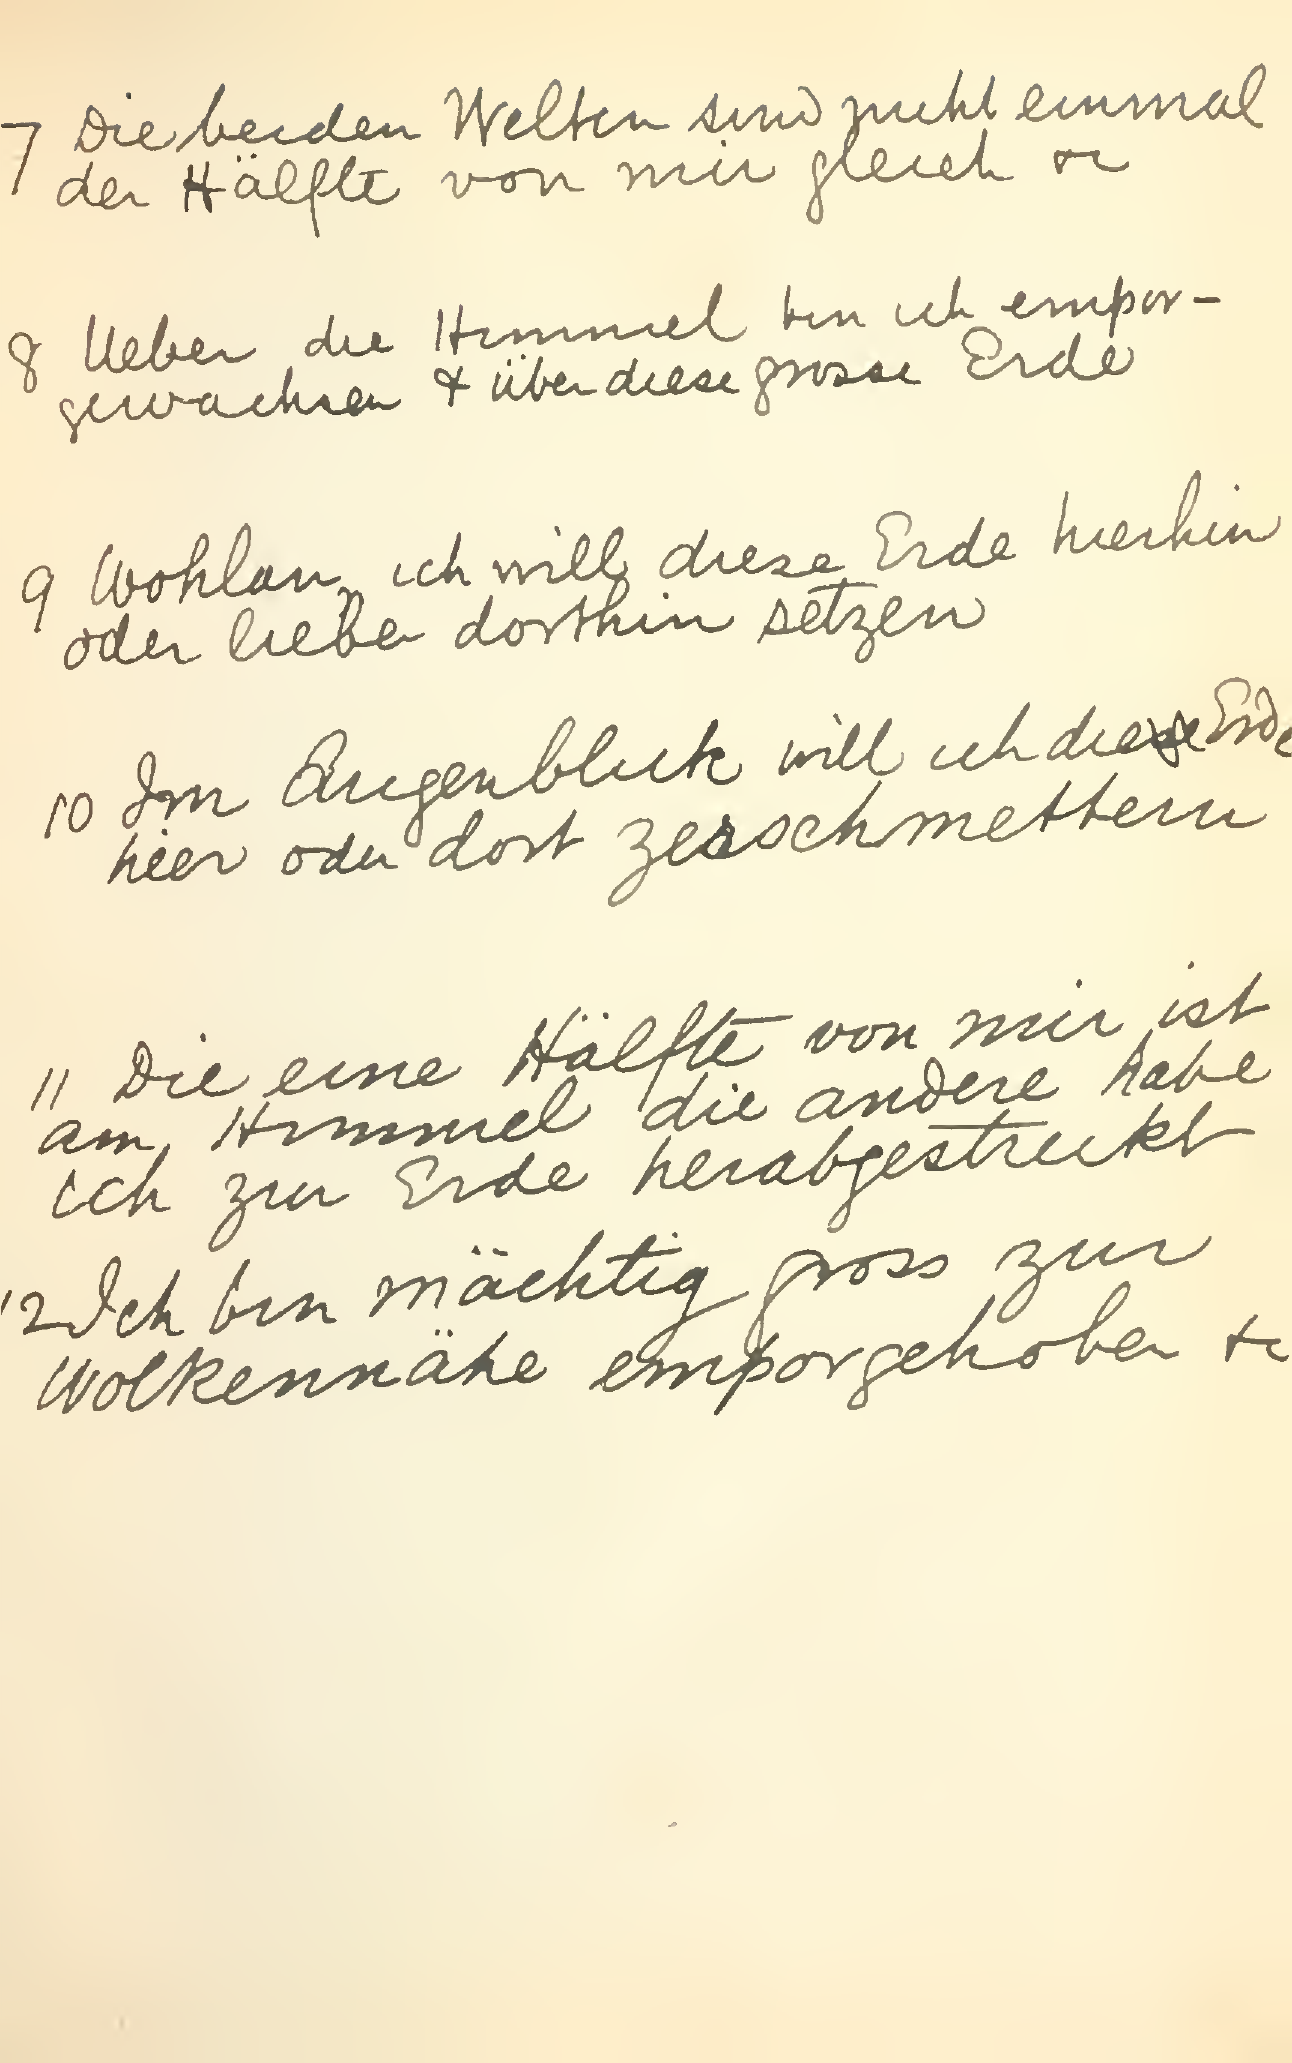 7 Die beiden Welten sind nicht einmal
der Hälfte von mir gleich &c
8 Ueber die Himmel bin ich empor-
gewachsen & über diese grosse Erde
9 Wohlan, ich will diese Erde hierhin
oder lieber dorthin setzen
10 Im Augenblick will ich diese Erde
hier oder dort zerschmettern
11 Die eine Hälfte von mir ist
am Himmel die andere habe
ich zur Erde herabgestreckt
12 Ich bin mächtig gross zur
Wolkennähe emporgehoben &c